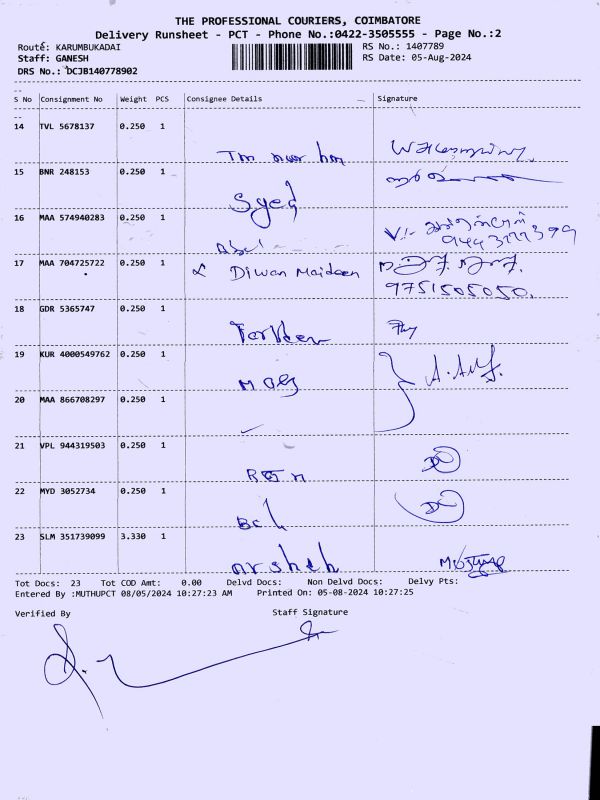 THE PROFESSIONAL COURIERS, COIMBATORE
Delivery Runsheet - PCT - Phone No.:0422-3505555 - Page No.:2
Route: KARUMBUKADAI RS No.: 1407789
Staff: GANESH RS Date: 05-Aug-2024
DRS No.: DCJB140778902
S No Consignment No Weight PCS Consignee Details Signature
14 TVL 5678137 0.250 1
15 BNR 248153 0.250 1
Syed
16 MAA 574940283 0.250 1
17 MAA 704725722 0.250 1 Diwan Maideen
9751505050.
18 GDR 5365747 0.250 1
19 KUR 4000549762 0.250 1
20 MAA 866708297 0.250 1
21 VPL 944319503 0.250 1
22 MYD 3052734 0.250 1
23 SLM 351739099 3.330 1
arsheh
Tot Docs: 23 Tot COD Amt: 0.00 Delvd Docs: Non Delvd Docs: Delvy Pts:
Entered By :MUTHUPCT 08/05/2024 10:27:23 AM Printed On: 05-08-2024 10:27:25
Verified By Staff Signature